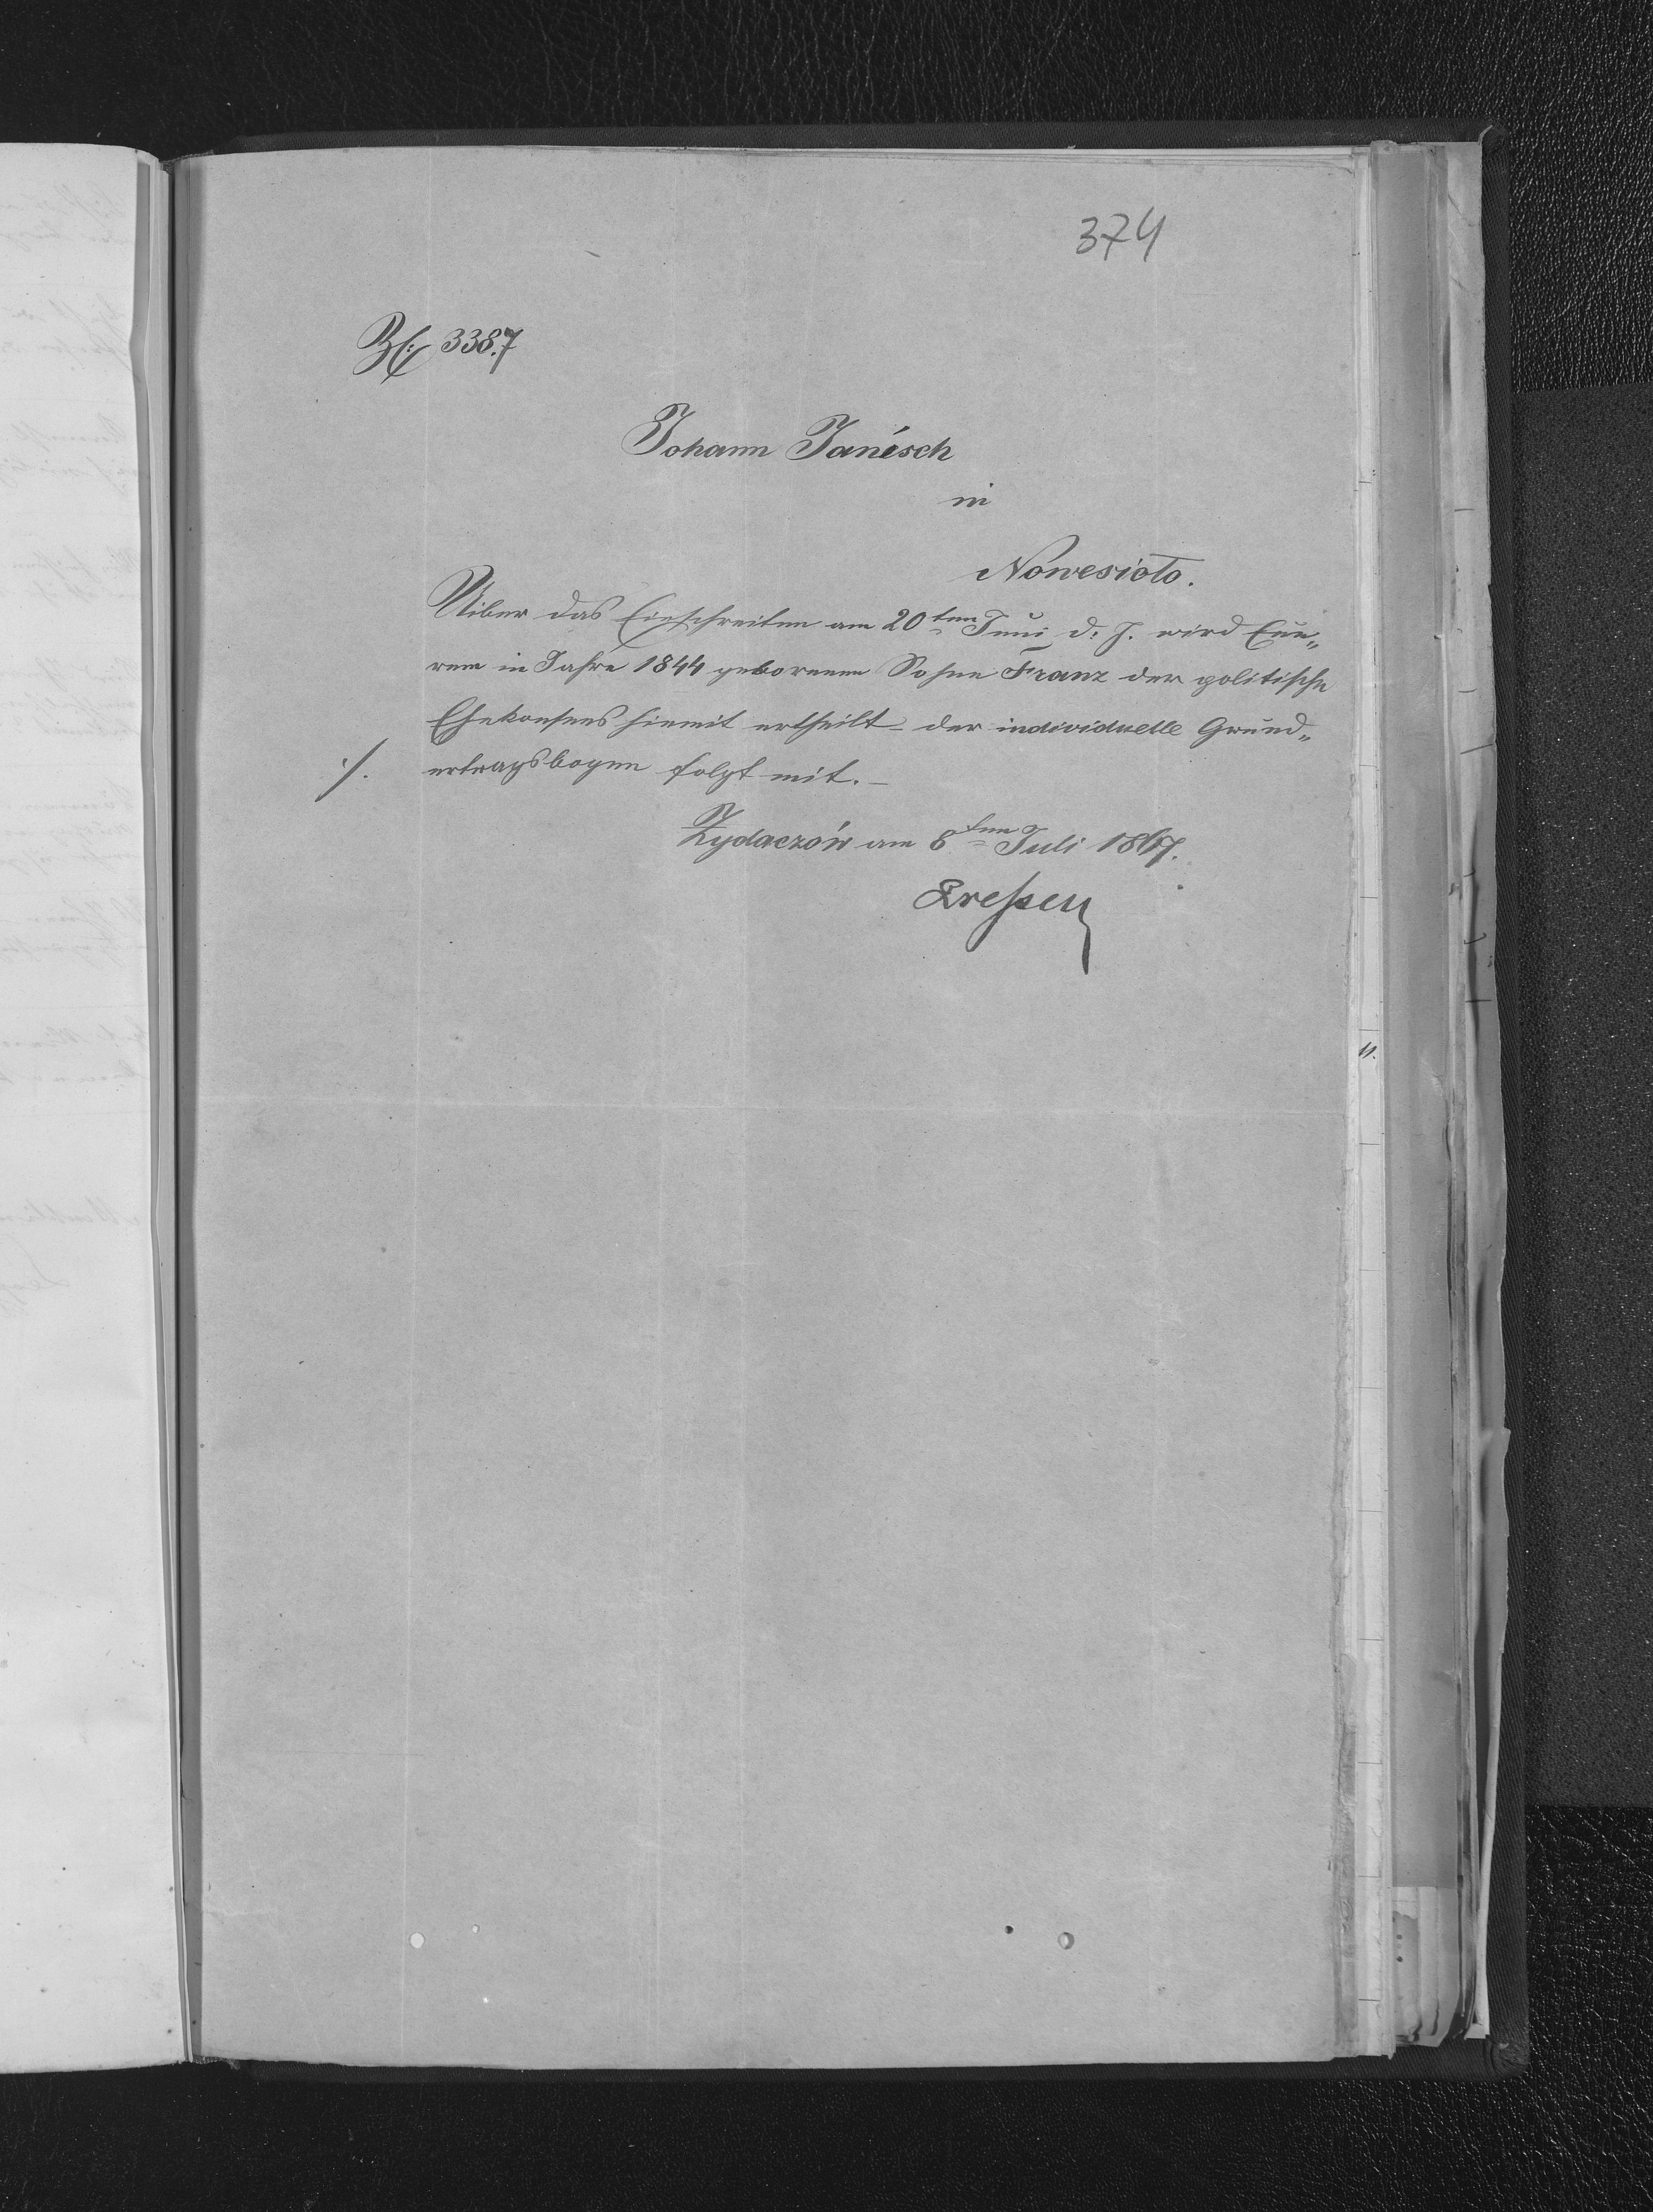 374
Zl: 3387
Johann Janesch
in
Nowesioło.
Uiber das Einschreiten am 20ten Juni d. J. wird Eue„
rem in Jahre 1844 geborenen Sohne Franz der politische
Ehekonsens hiemit ertheilt – der individuelle Grund„
./. ertragsbogen folgt mit. –
Żydaczów am 8ten Juli 1867.